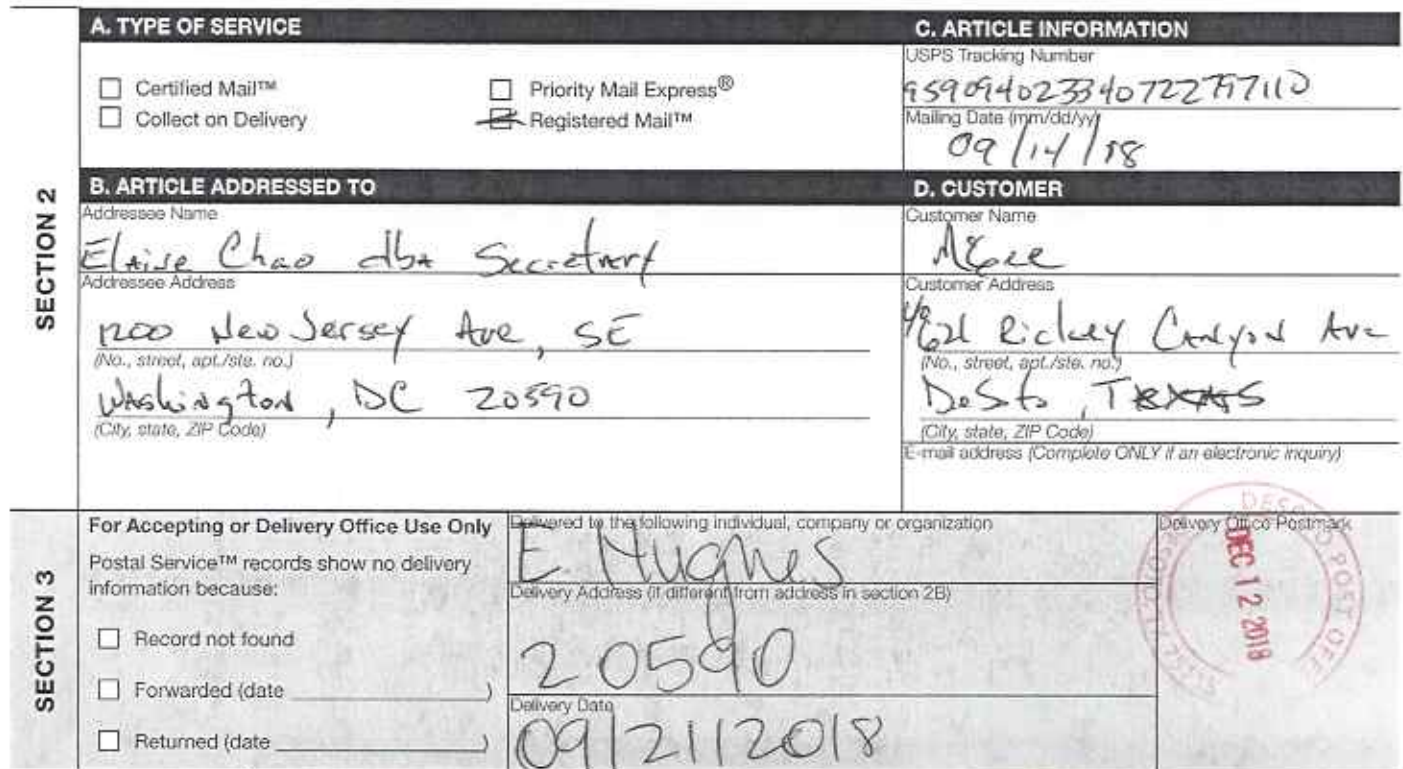 SECTION 2
A. TYPE OF SERVICE
Certified Mail™
Collect on Delivery
Priority Mail Express®
Registered Mail™
C. ARTICLE INFORMATION
USPS Tracking Number
Mailing Date (mm/dd/yy)
09/14/18
B. ARTICLE ADDRESSED TO
Addressee Name
Elaine Chao dba Secretary
Addressee Address
1200 New Jersey Ave, SE
(No., street, apt./ste. no.)
Washington, DC 20590
(City, state, ZIP Code)
D. CUSTOMER
Customer Name
Customer Address
Rickey Canyon Ave
(No., street, apt./ste. no.)
DeSoto, Texas
(City, state, ZIP Code)
E-mail address (Complete ONLY if an electronic inquiry)
SECTION 3
For Accepting or Delivery Office Use Only
Postal Service™ records show no delivery
information because:
Record not found
Forwarded (date
Returned (date
Delivered to the following individual, company or organization
E. Hughes
Delivery Address (if different from address in section 2B)
20590
Delivery Date
09/21/2018
Delivery Office Postmark
DESOTO POST OFF
DEC 12 2018